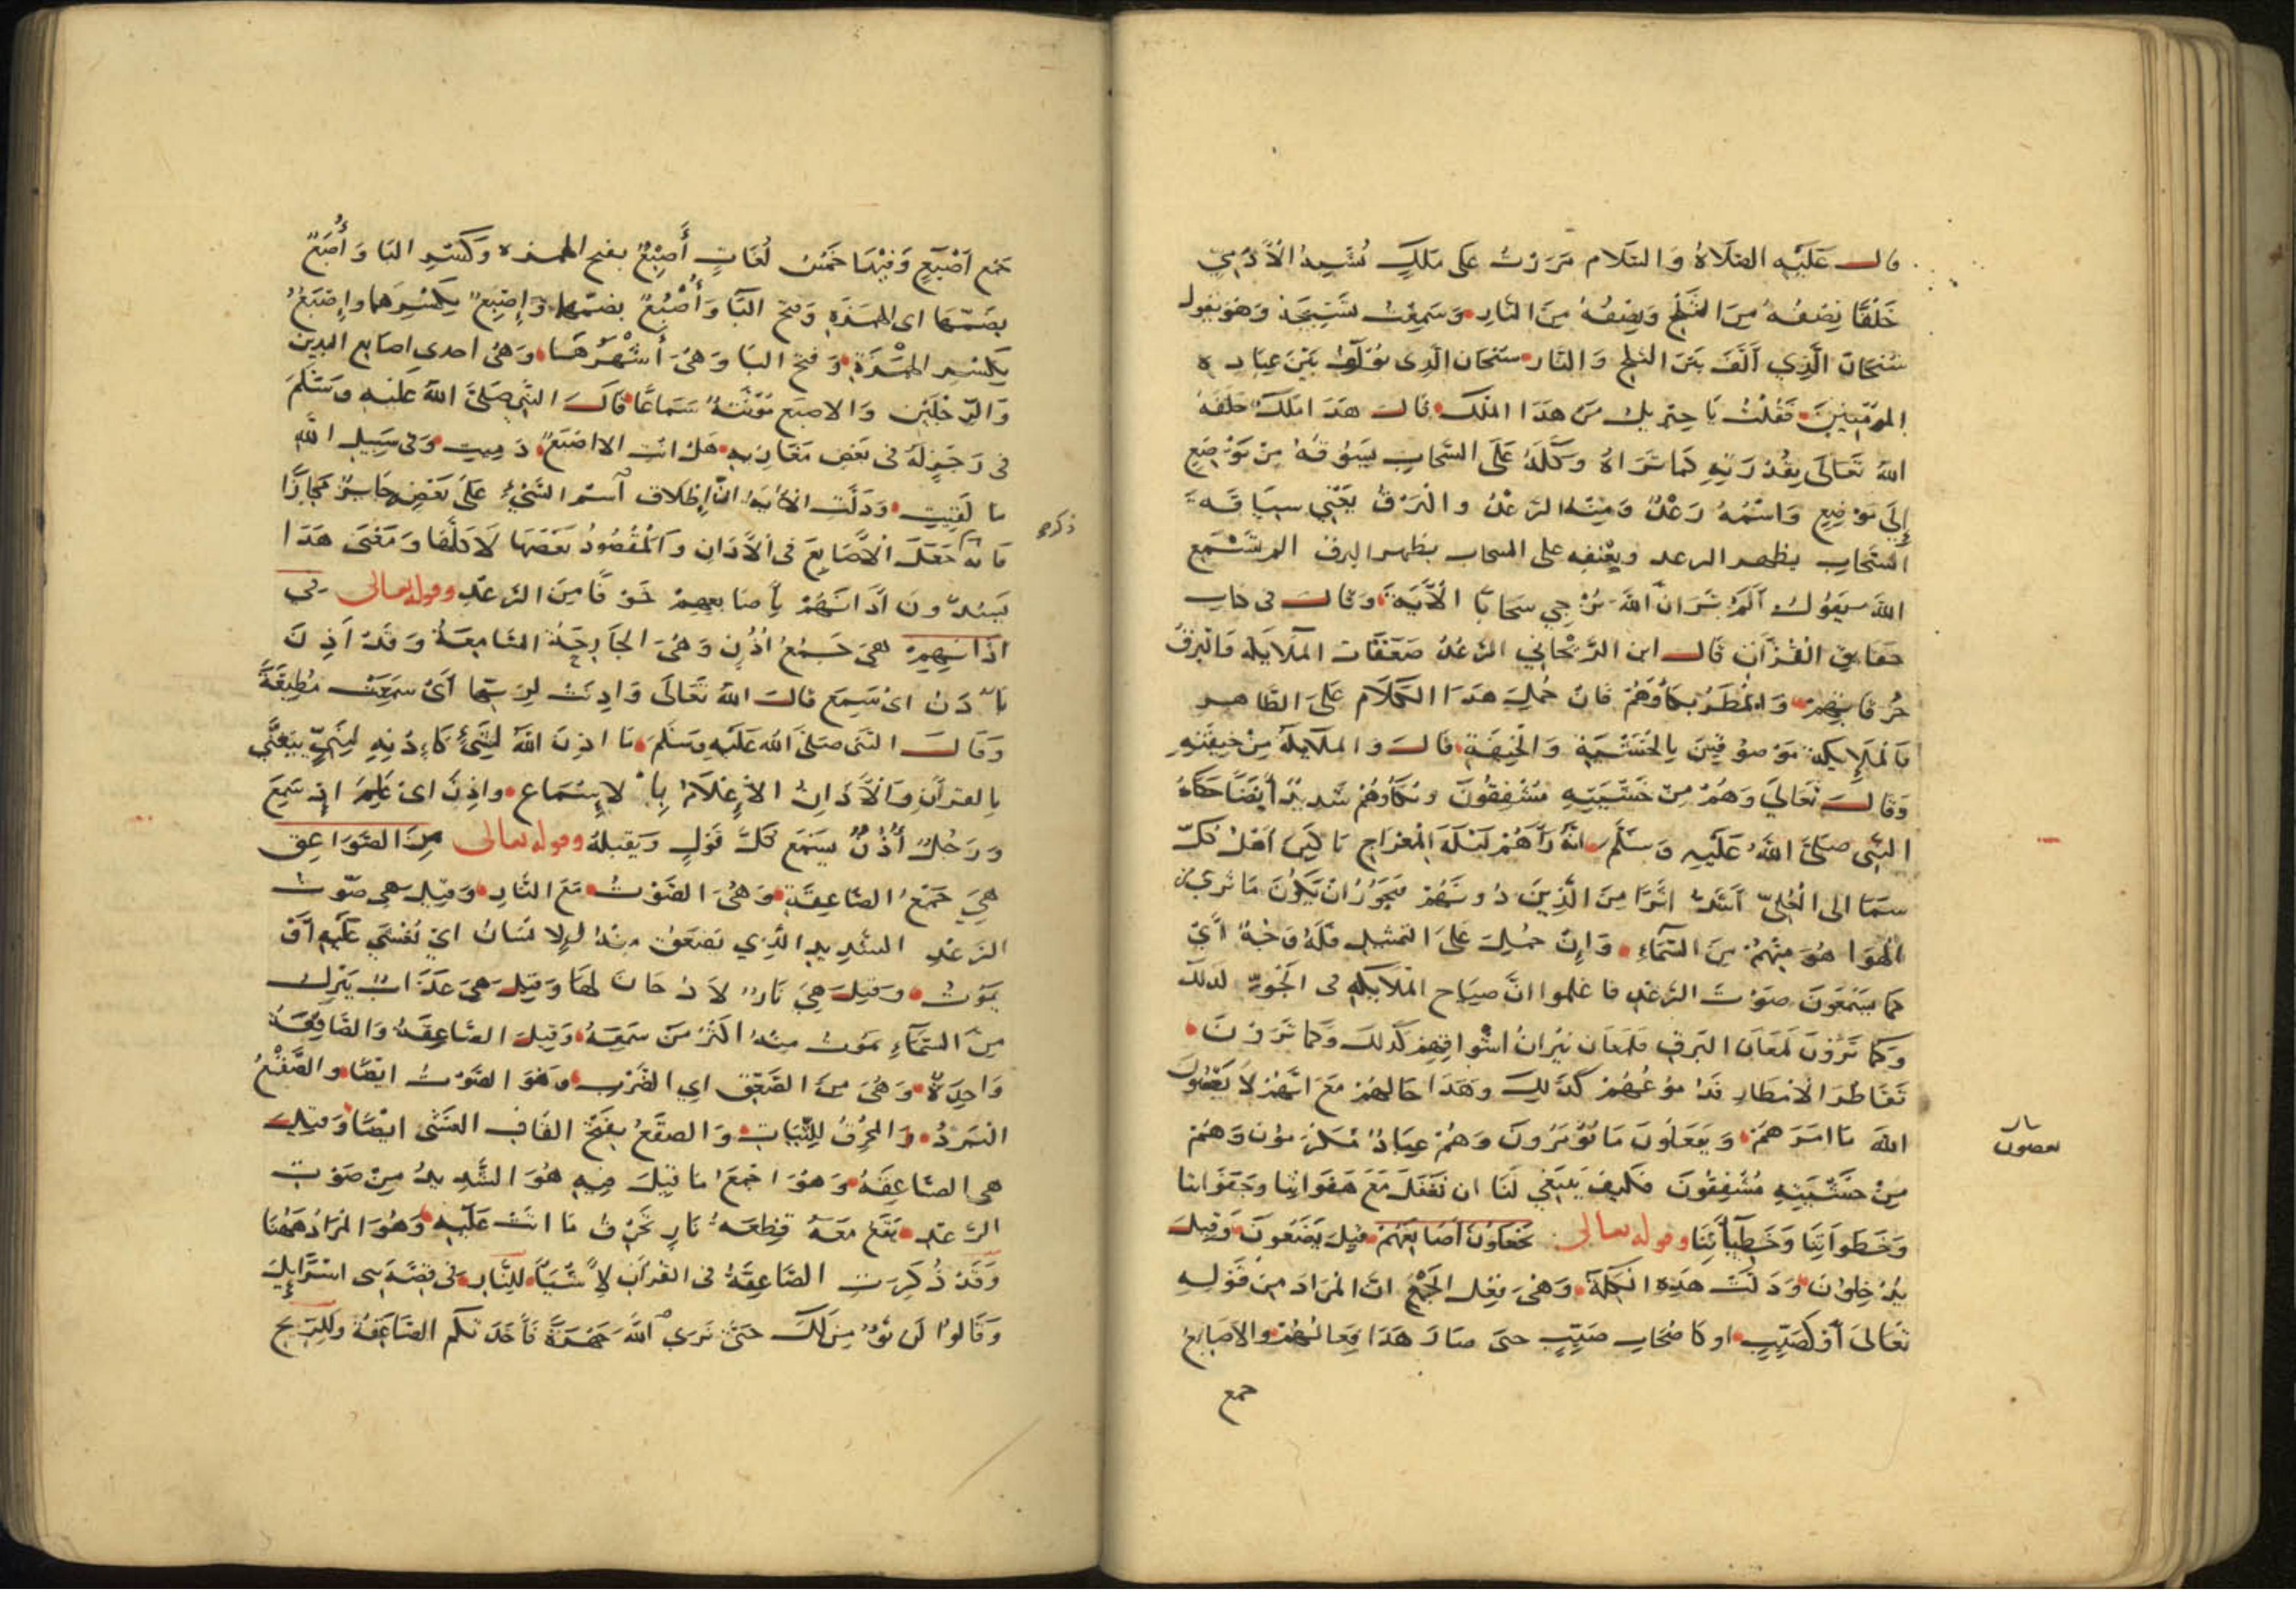 قال عليه الصلاة والسلام مررت على ملك يشبه الآدمي
خلقا نصفه من الثلج ونصفه من النار وسمعت تسبيحه وهو يقول
سبحان الذي ألف بين الثلج والنار سبحان الذي يؤلف بين عباده
المؤمنين فقلت يا جبريل من هذا الملك قال هذا ملك خلقه
الله تعالى بقدرته كما تراه وكله على السحاب يسوقه من موضع
إلى موضع واسمه رعد ومنه الرعد والبرق يعني سياقه
السحاب يظهر الرعد ويعنفه على السحاب يظهر البرق الم تسمع
الله يقول ألم تر ان الله يزجي سحابا الآية وقال في كتاب
حقايق القرآن قال ابن الريحاني الرعد صعقات الملايكة والبرق
حرقاتهم والمطر بكاؤهم فان حمل هذا الكلام على الظاهر
فالملايكة موصوفين بالخشية والخيفة قال والملايكة من خيفته
وقال تعالى وهم من خشيته مشفقون وبكاؤهم شديد أيضا حكاه
النبي صلى الله عليه وسلم انه رآهم ليلة المعراج باكين اهل كل
سما الى العلى أشد اثرا من الذين دونهم فيجوز ان يكون ما ترى من
الهوا هو منهم من السماء وان حمل على التمثيل فله وجه أي
كما يسمعون صوت الرعد فاعلموا ان صياح الملايكة في الجو كذلك
وكما ترون لمعان البرق فلمعان نيران اشواقهم كذلك وكما ترون
تقاطر الامطار فدموعهم كذلك وهذا حالهم مع انهم لا يعصون
الله ما امرهم ويفعلون ما يؤمرون وهم عباد مكرمون وهم
من خشيته مشفقون فكيف ينبغي لنا ان نفعل مع هفواتنا وجفواتنا
وخطواتنا وخطيآتنا وقوله تعالى يجعلون أصابعهم قيل يضعون وقيل
يدخلون ودلت هذه الكلمة وهي بفعل الجمع ان المراد من قوله
تعالى أو كصيب او كاصحاب صيب حتى صار هذا فعالهم والاصابع
جمع
يعصون
جمع أصبع وفيها خمس لغات أصبع بفتح الهمزه وكسر البا وأصبع
بضمها اى الهمزة وفتح البا وأصبع بضمهما وإصبع بكسرهما وإصبع
بكسر الهمزة وفتح البا وهي أشهرها وهي احدى اصابع اليدين
والرجلين والاصبع مؤنثة سماعا قال النبي صلى الله عليه وسلم
في رجز له في بعض مغازيه هل انت الا اصبع دميت وفي سبيل الله
ما لقيت ودلت الآية ان إطلاق اسم الشيء على بعضه جايز مجازا
فانه جعل الأصابع في الآذان والمقصود بعضها لا كلها ومعنى هذا
ذكره
يسدون آذانهم بأصابعهم خوفا من الرعد وقوله تعالى في
اذانهم هي جمع أذن وهي الجارحة السامعة وقد أذن
يأذن اى سمع قال الله تعالى واذنت لربها أى سمعت مطيعة
وقال النبي صلى الله عليه وسلم ما اذن الله لشيء كاذنه لنبي يتغنى
بالقرآن والأذان الأعلام بالاستماع واذن اى علم اذ سمع
ورجل أذن يسمع كل قول ويقبله وقوله تعالى من الصواعق
هي جمع الصاعقة وهي الصوت مع النار وقيل هي صوت
الرعد الشديد الذي يصعق منه الإنسان اي يغشى عليه أو
يموت وقيل هي نار لا دخان لها وقيل هي عذاب ينزل
من السماء يموت منه اكثر من سمعه وقيل الصاعقة والصاقعة
واحدة وهي من الصعق اي الضرب وهو الصوت ايضا والصقع
البرد والمحرق للنبات والصقع بفتح القاف الغشى ايضا وقيل
هي الصاعقة وهو اجمع ما قيل فيه هو الشديد من صوت
الرعد يقع معه قطعة نار تحرق ما اتت عليه وهو المراد ههنا
وقد ذكرت الصاعقة في القرآن لاشياء للنار في قصة بني اسرائيل
وقالوا لن نؤمن لك حتى نرى الله جهرة فأخذتكم الصاعقة وللريح